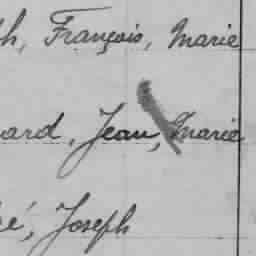 h, François, Marie
ard, Jean, Marie
é, Joseph